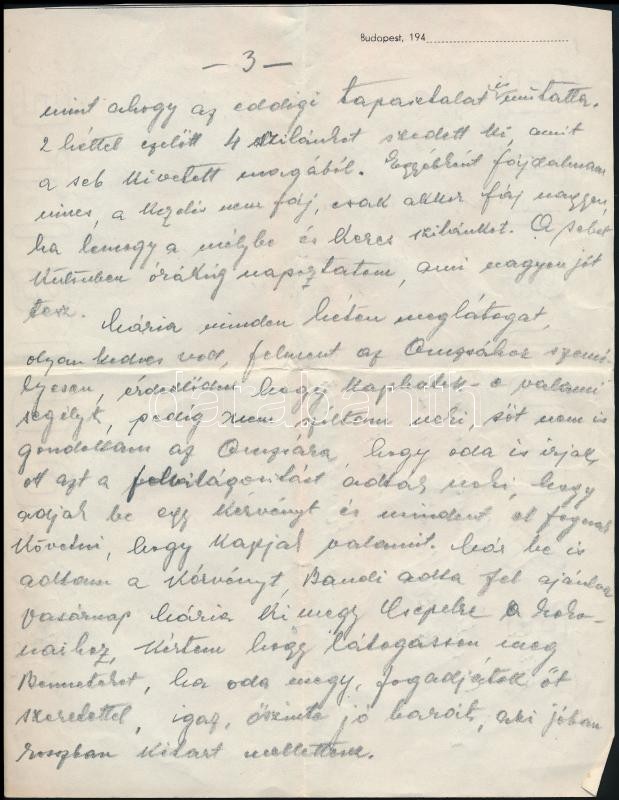 Budapest, 194
— 3 —
mint ahogy az eddigi tapasztalat is mutatta.
2 héttel ezelőtt 4 szilánkot szedett ki, amit
a seb kivetett magából. Egyébként fájdalmam
nincs, a kezelés nem fáj, csak akkor fáj nagyon,
ha lemegy a mélybe és keres szilánkot. A sebet
különben órákig napoztatom, ami nagyon jót
tesz.
Mária minden héten meglátogat,
olyan kedves volt, felment az Omzsához szemé-
lyesen, érdeklődni, hogy kaphatok-e valami
segélyt, pedig nem szóltam neki, sőt nem is
gondoltam az Omzsára, hogy oda is írjak,
ott azt a felvilágosítást adták neki, hogy
adjak be egy kérvényt és mindent el fognak
követni, hogy kapjak valamit. Már be is
adtam a kérvényt, Bandi adta fel ajánlva
vasárnap Mária kimegy Csepelre a roko-
naihoz, kértem hogy látogasson meg
Benneteket, ha oda megy, fogadjátok őt
szeretettel, igaz, őszinte jó barát, aki jóban
rosszban kitart mellettem.